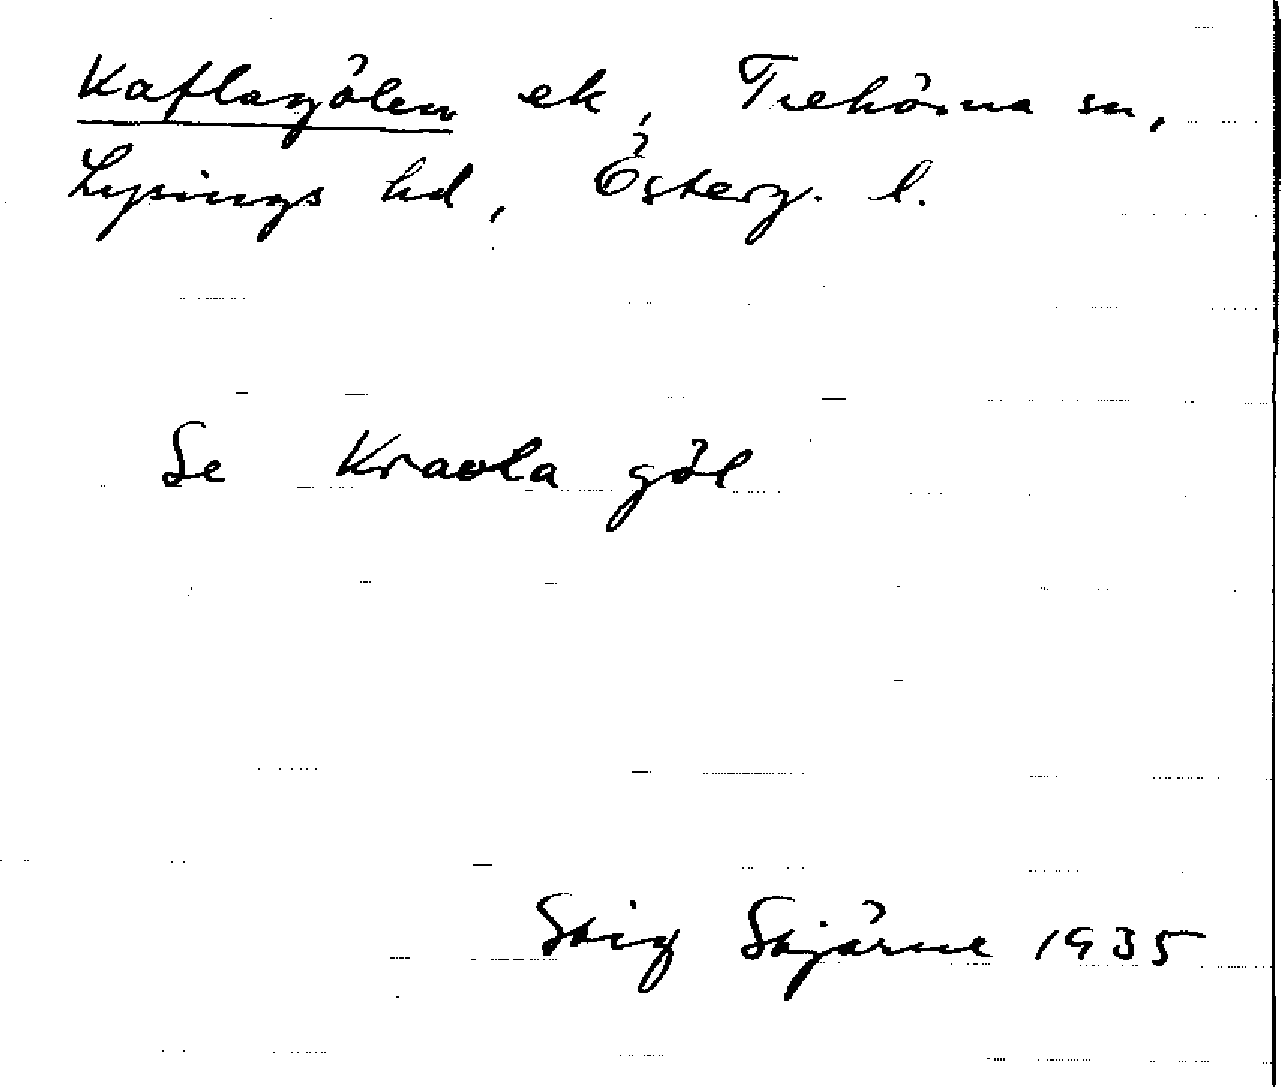 Kaflagölen ek, Trehörna sn,
Lysings hd, Österg. l.
Se Kravla göl
Stig Stjärne 1935